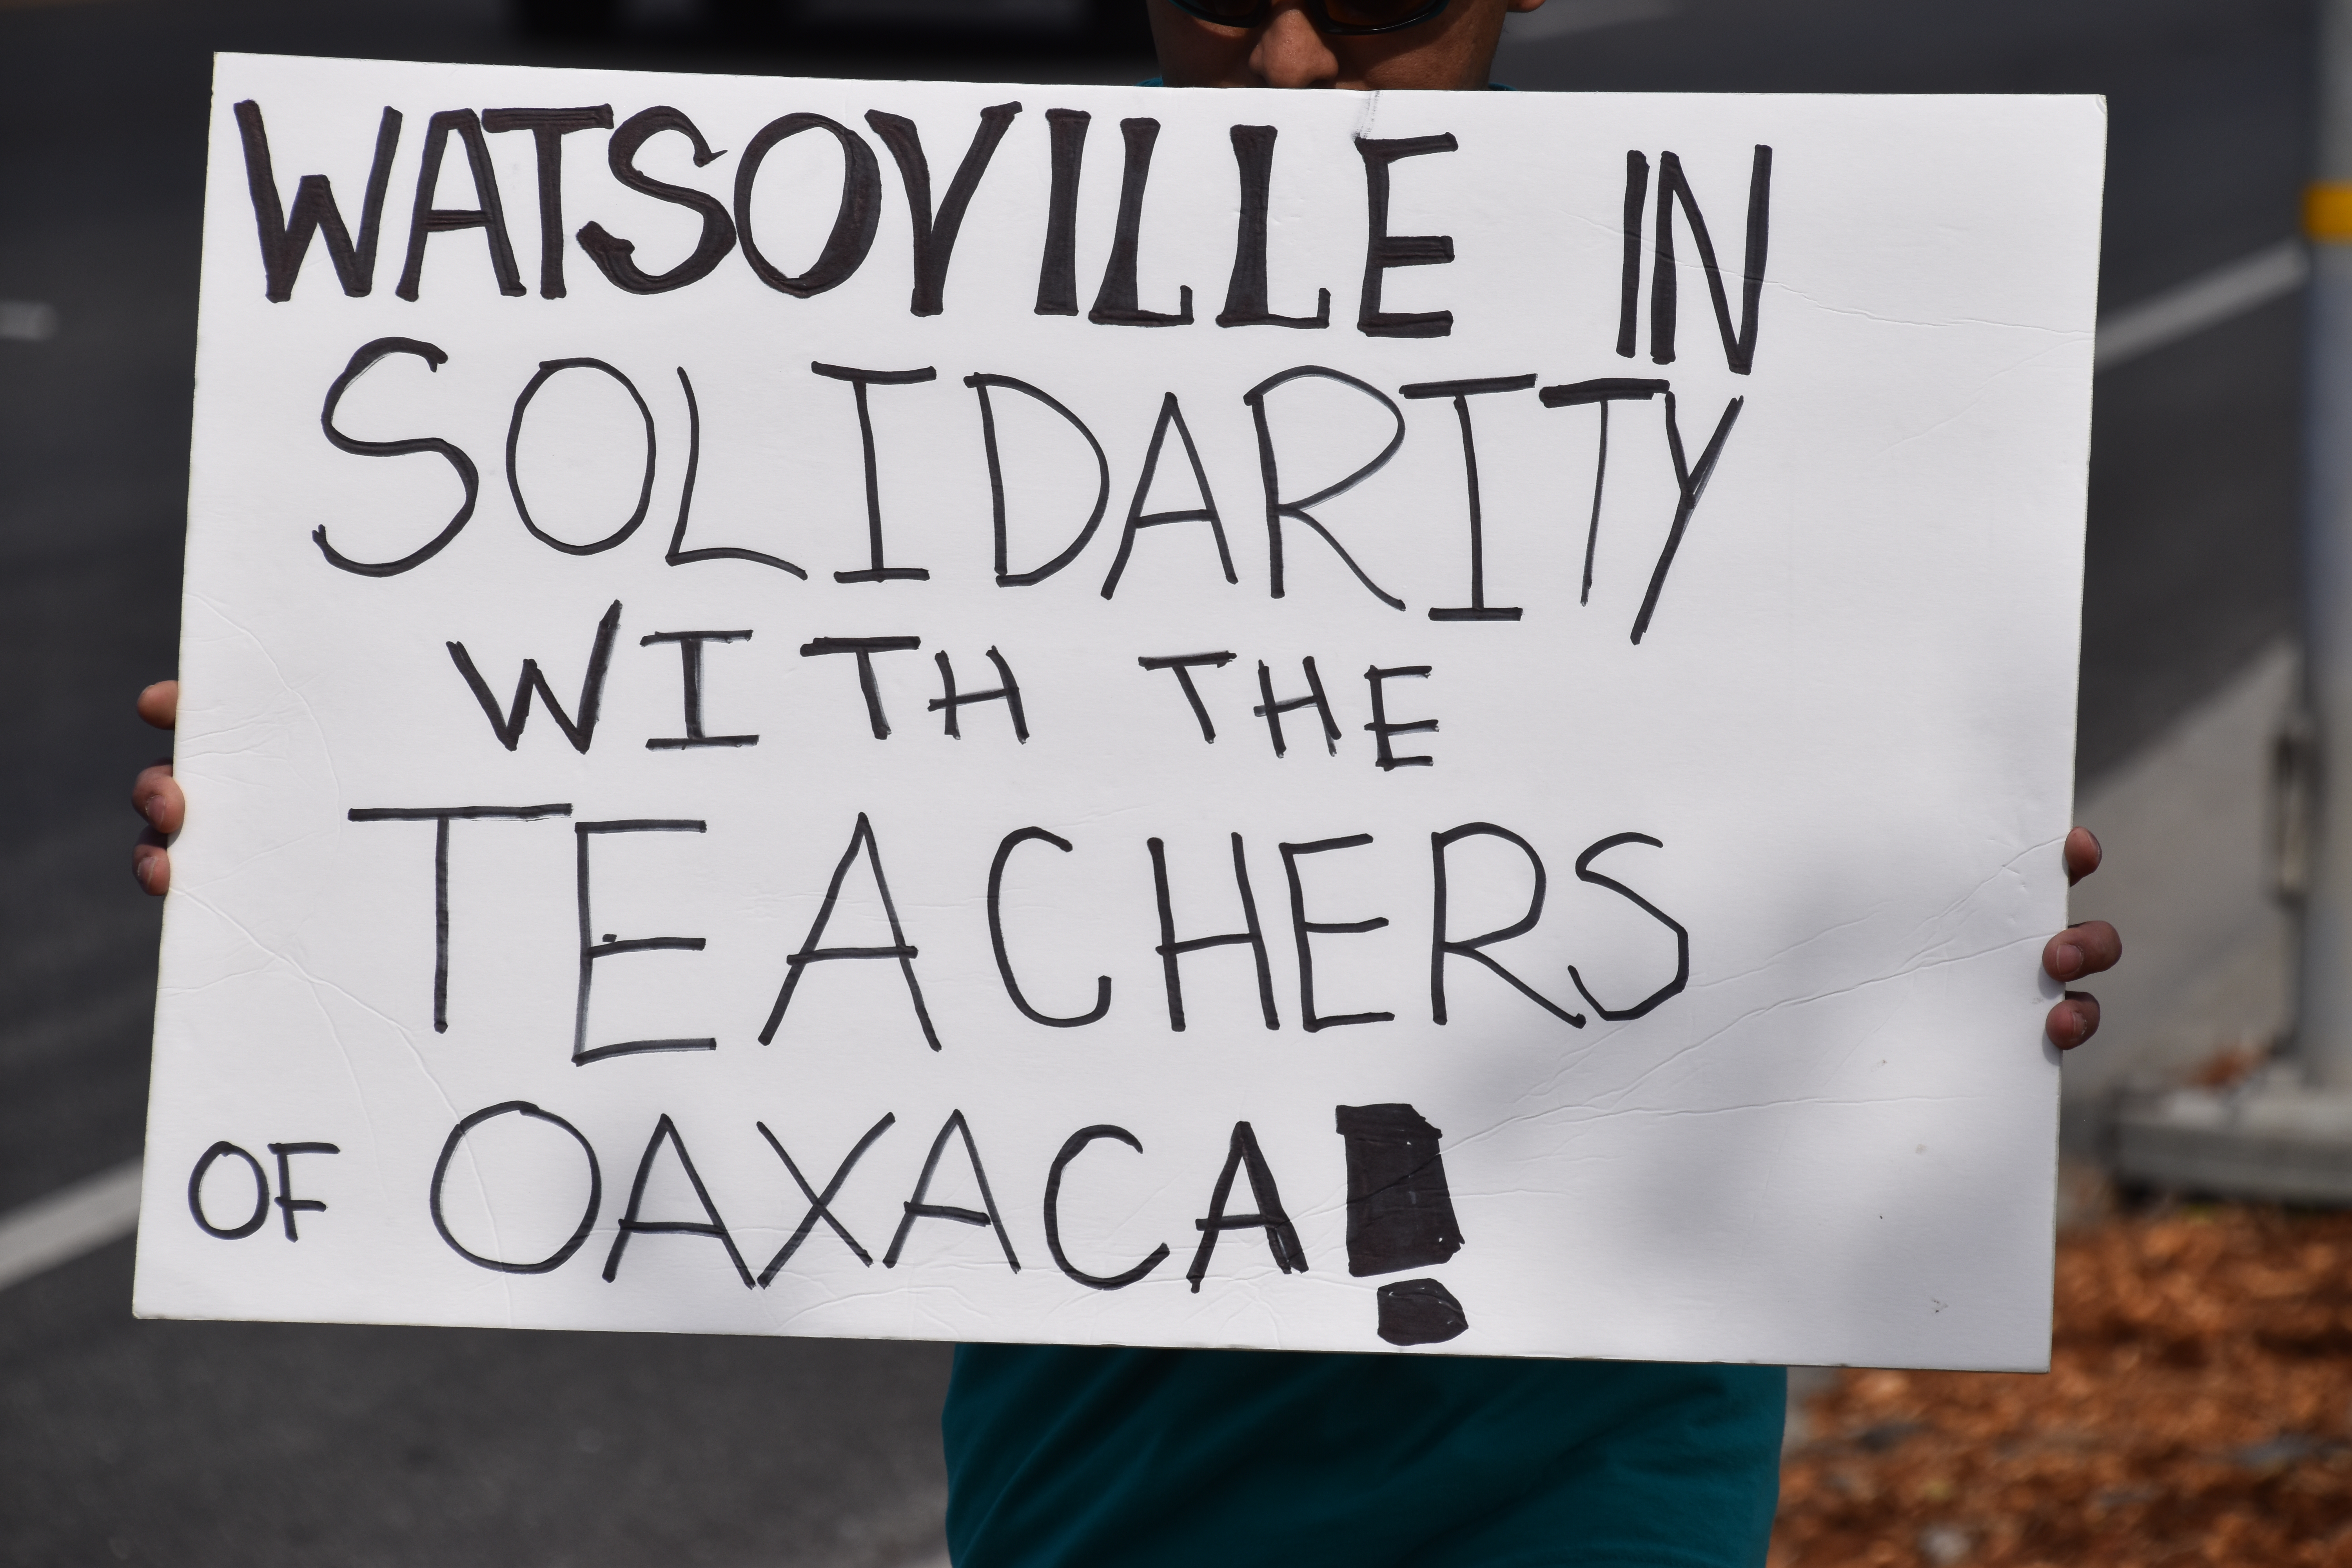 WATSOVILLE IN
SOLIDARITY
WITH THE
TEACHERS
OF OAXACA!